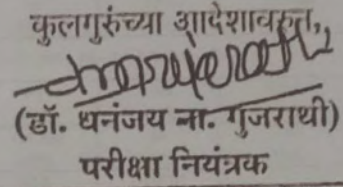 कुलगुरुंच्या आदेशावरुन,
(डॉ. धनंजय ना. गुजराथी)
परीक्षा नियंत्रक